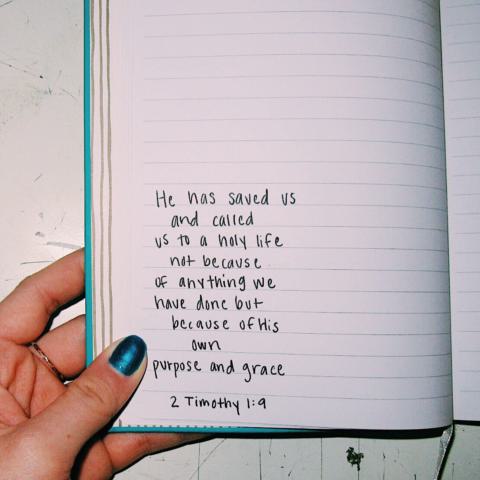 He has saved us
and called
us to a holy life
not because
of anything we
have done but
because of His
own
purpose and grace
2 Timothy 1:9